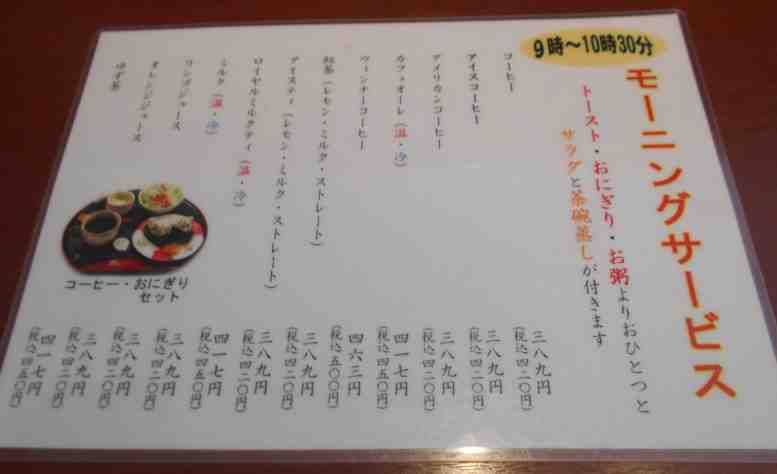 9時～10時30分
モーニングサービス
トースト・おにぎり・お粥よりおひとつと
サラダと茶碗蒸しが付きます
コーヒー 三八九円
(税込四二〇円)
アイスコーヒー 三八九円
(税込四二〇円)
アメリカンコーヒー 三八九円
(税込四二〇円)
カフェオーレ(温・冷) 四一七円
(税込四五〇円)
ウィンナーコーヒー 四六三円
(税込五〇〇円)
紅茶(レモン・ミルク・ストレート) 三八九円
(税込四二〇円)
アイスティ(レモン・ミルク・ストレート) 三八九円
(税込四二〇円)
ロイヤルミルクティ(温・冷) 四一七円
(税込四五〇円)
ミルク(温・冷) 三八九円
(税込四二〇円)
リンゴジュース 三八九円
(税込四二〇円)
オレンジジュース 三八九円
(税込四二〇円)
ゆず茶 四一七円
(税込四五〇円)
コーヒー・おにぎり
セット